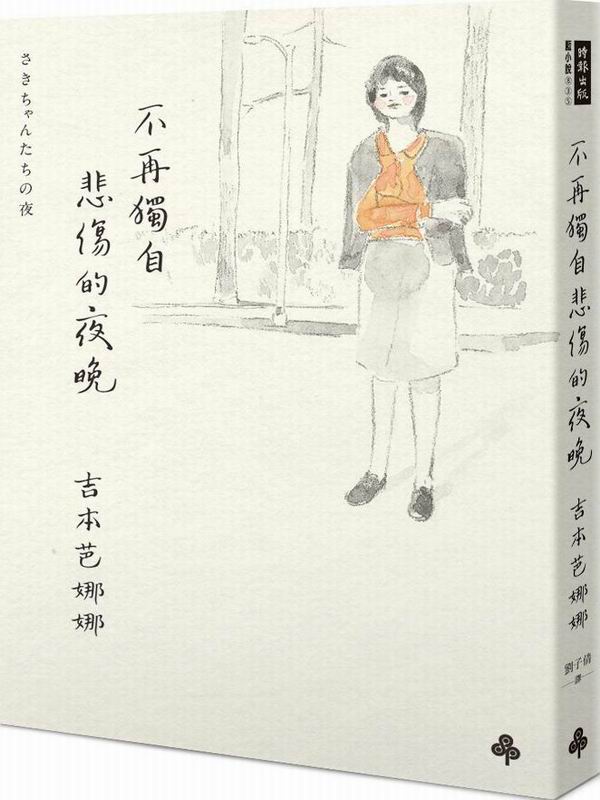 さきちゃんたちの夜
不再獨自
悲傷的夜晚
吉本芭娜娜
時報出版
藍小說835
不再獨自悲傷的夜晚
吉本芭娜娜
劉子倩
譯